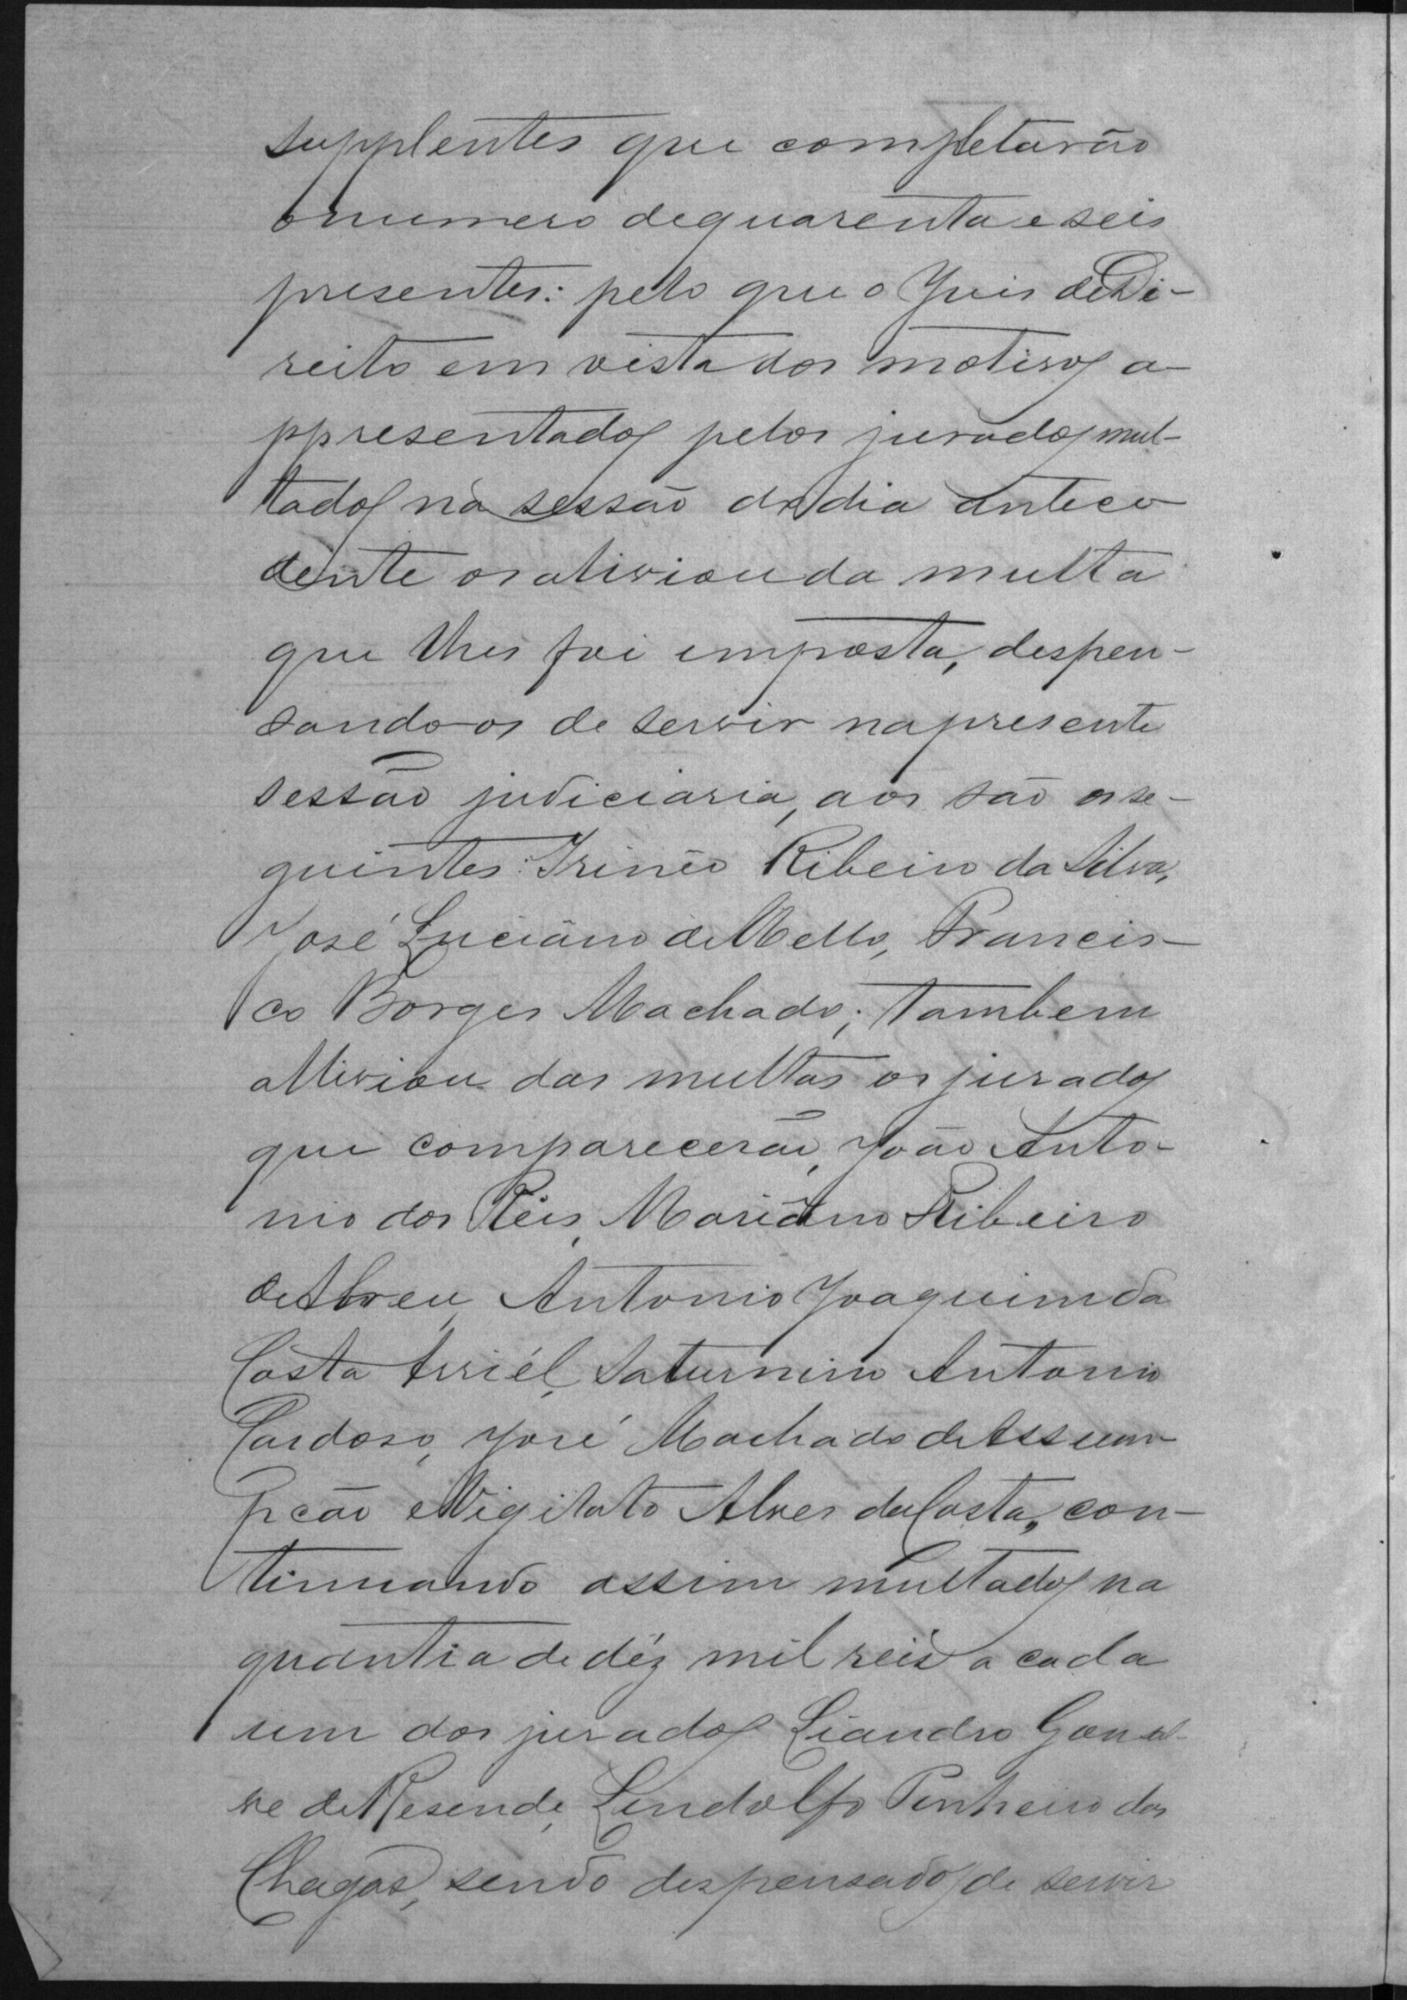 supplentes que completarão
o numero de quarenta e seis
presentes: pelo que o Juis de Di-
reito em vista dos motivos a-
ppresentados pelos jurados mul-
tados na sessão do dia antece
dente os alivion da multa
que lhes foi imposta, despen-
sando-os de servir na presente
sessão judiciaria, aos são os se-
guintes: Irinêo Ribeiro da Silva,
José Luciano de Mello, Francis-
co Borges Machado; tambem
alliviou das multas os jurados
que comparecerão, João Anto-
nio dos Reis, Mariano Ribeiro
de Abreu, Antonio Joaquim da
Costa Arriél, Saturnino Antonio
Cardoso, José Machado de Assum-
pção e Vigilato Alves da Costa, con-
tinuando assim multados na
quantia de déz mil reis a cada
um dos jurados Liandro Gonsal-
ve de Resende, Lendolfo Pinheiro das
Chagas, sendo despensados de servir